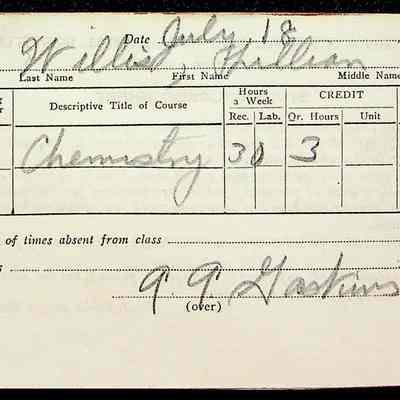 Date July 18
Willis, Lillian
Last Name First Name Middle Name
Descriptive Title of Course Hours a Week CREDIT
Rec. Lab. Qr. Hours Unit
Chemistry 3 0 3
of times absent from class
Gaskins
(over)